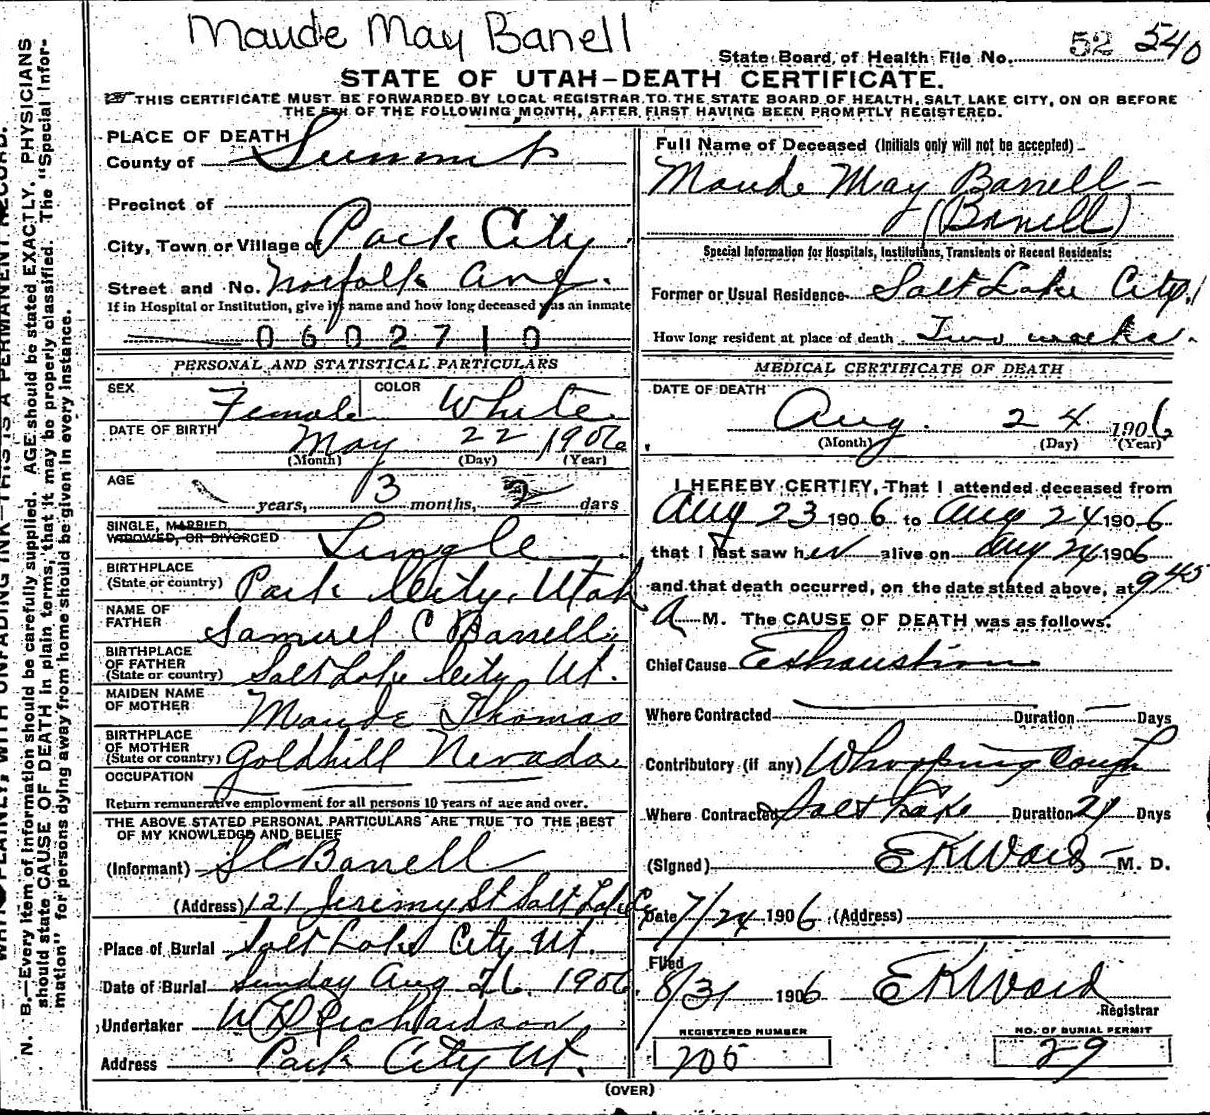 Maude May Banell
State Board of Health File No. 52 540
STATE OF UTAH-DEATH CERTIFICATE.
THIS CERTIFICATE MUST BE FORWARDED BY LOCAL REGISTRAR TO THE STATE BOARD OF HEALTH, SALT LAKE CITY, ON OR BEFORE
THE 5TH OF THE FOLLOWING MONTH, AFTER FIRST HAVING BEEN PROMPTLY REGISTERED.
PLACE OF DEATH
County of Summit
Precinct of
City, Town or Village of Park City
Street and No. Norfolk Ave.
If in Hospital or Institution, give its name and how long deceased was an inmate
0602710
PERSONAL AND STATISTICAL PARTICULARS
SEX Female COLOR White
DATE OF BIRTH May 22 1906
(Month) (Day) (Year)
AGE years, 3 months, 2 days
SINGLE, MARRIED,
WIDOWED, OR DIVORCED Single
BIRTHPLACE
(State or country) Park City, Utah
NAME OF
FATHER Samuel C Banell
BIRTHPLACE
OF FATHER
(State or country) Salt Lake City Ut.
MAIDEN NAME
OF MOTHER Maude Thomas
BIRTHPLACE
OF MOTHER
(State or country) Goldhill Nevada
OCCUPATION
Return remunerative employment for all persons 10 years of age and over.
THE ABOVE STATED PERSONAL PARTICULARS ARE TRUE TO THE BEST
OF MY KNOWLEDGE AND BELIEF
(Informant) S C Banell
(Address) 121 Jeremy St Salt Lake Cy
Place of Burial Salt Lake City Ut.
Date of Burial Sunday Aug 26 1906
Undertaker W D Richardson
Address Park City Ut.
Full Name of Deceased (Initials only will not be accepted)
Maude May Banell
(Banell)
Special Information for Hospitals, Institutions, Transients or Recent Residents:
Former or Usual Residence Salt Lake City
How long resident at place of death Two weeks.
MEDICAL CERTIFICATE OF DEATH
DATE OF DEATH
Aug. 24 1906
(Month) (Day) (Year)
I HEREBY CERTIFY, That I attended deceased from
Aug 23 1906 to Aug 24 1906
that I last saw her alive on Aug 24 1906
and that death occurred, on the date stated above, at 9 45
A M. The CAUSE OF DEATH was as follows:
Chief Cause Exhaustion
Where Contracted Duration Days
Contributory (if any) Whooping Cough
Where Contracted Salt Lake Duration 21 Days
(Signed) E K Ward M. D.
Date 7/24 1906 (Address)
Filed
8/31 1906 E K Ward
Registrar
REGISTERED NUMBER NO. OF BURIAL PERMIT
205 29
(OVER)
N. B.—Every item of information should be carefully supplied. AGE should be stated EXACTLY. PHYSICIANS
should state CAUSE OF DEATH in plain terms, that it may be properly classified. The "Special Infor-
mation" for persons dying away from home should be given in every instance.